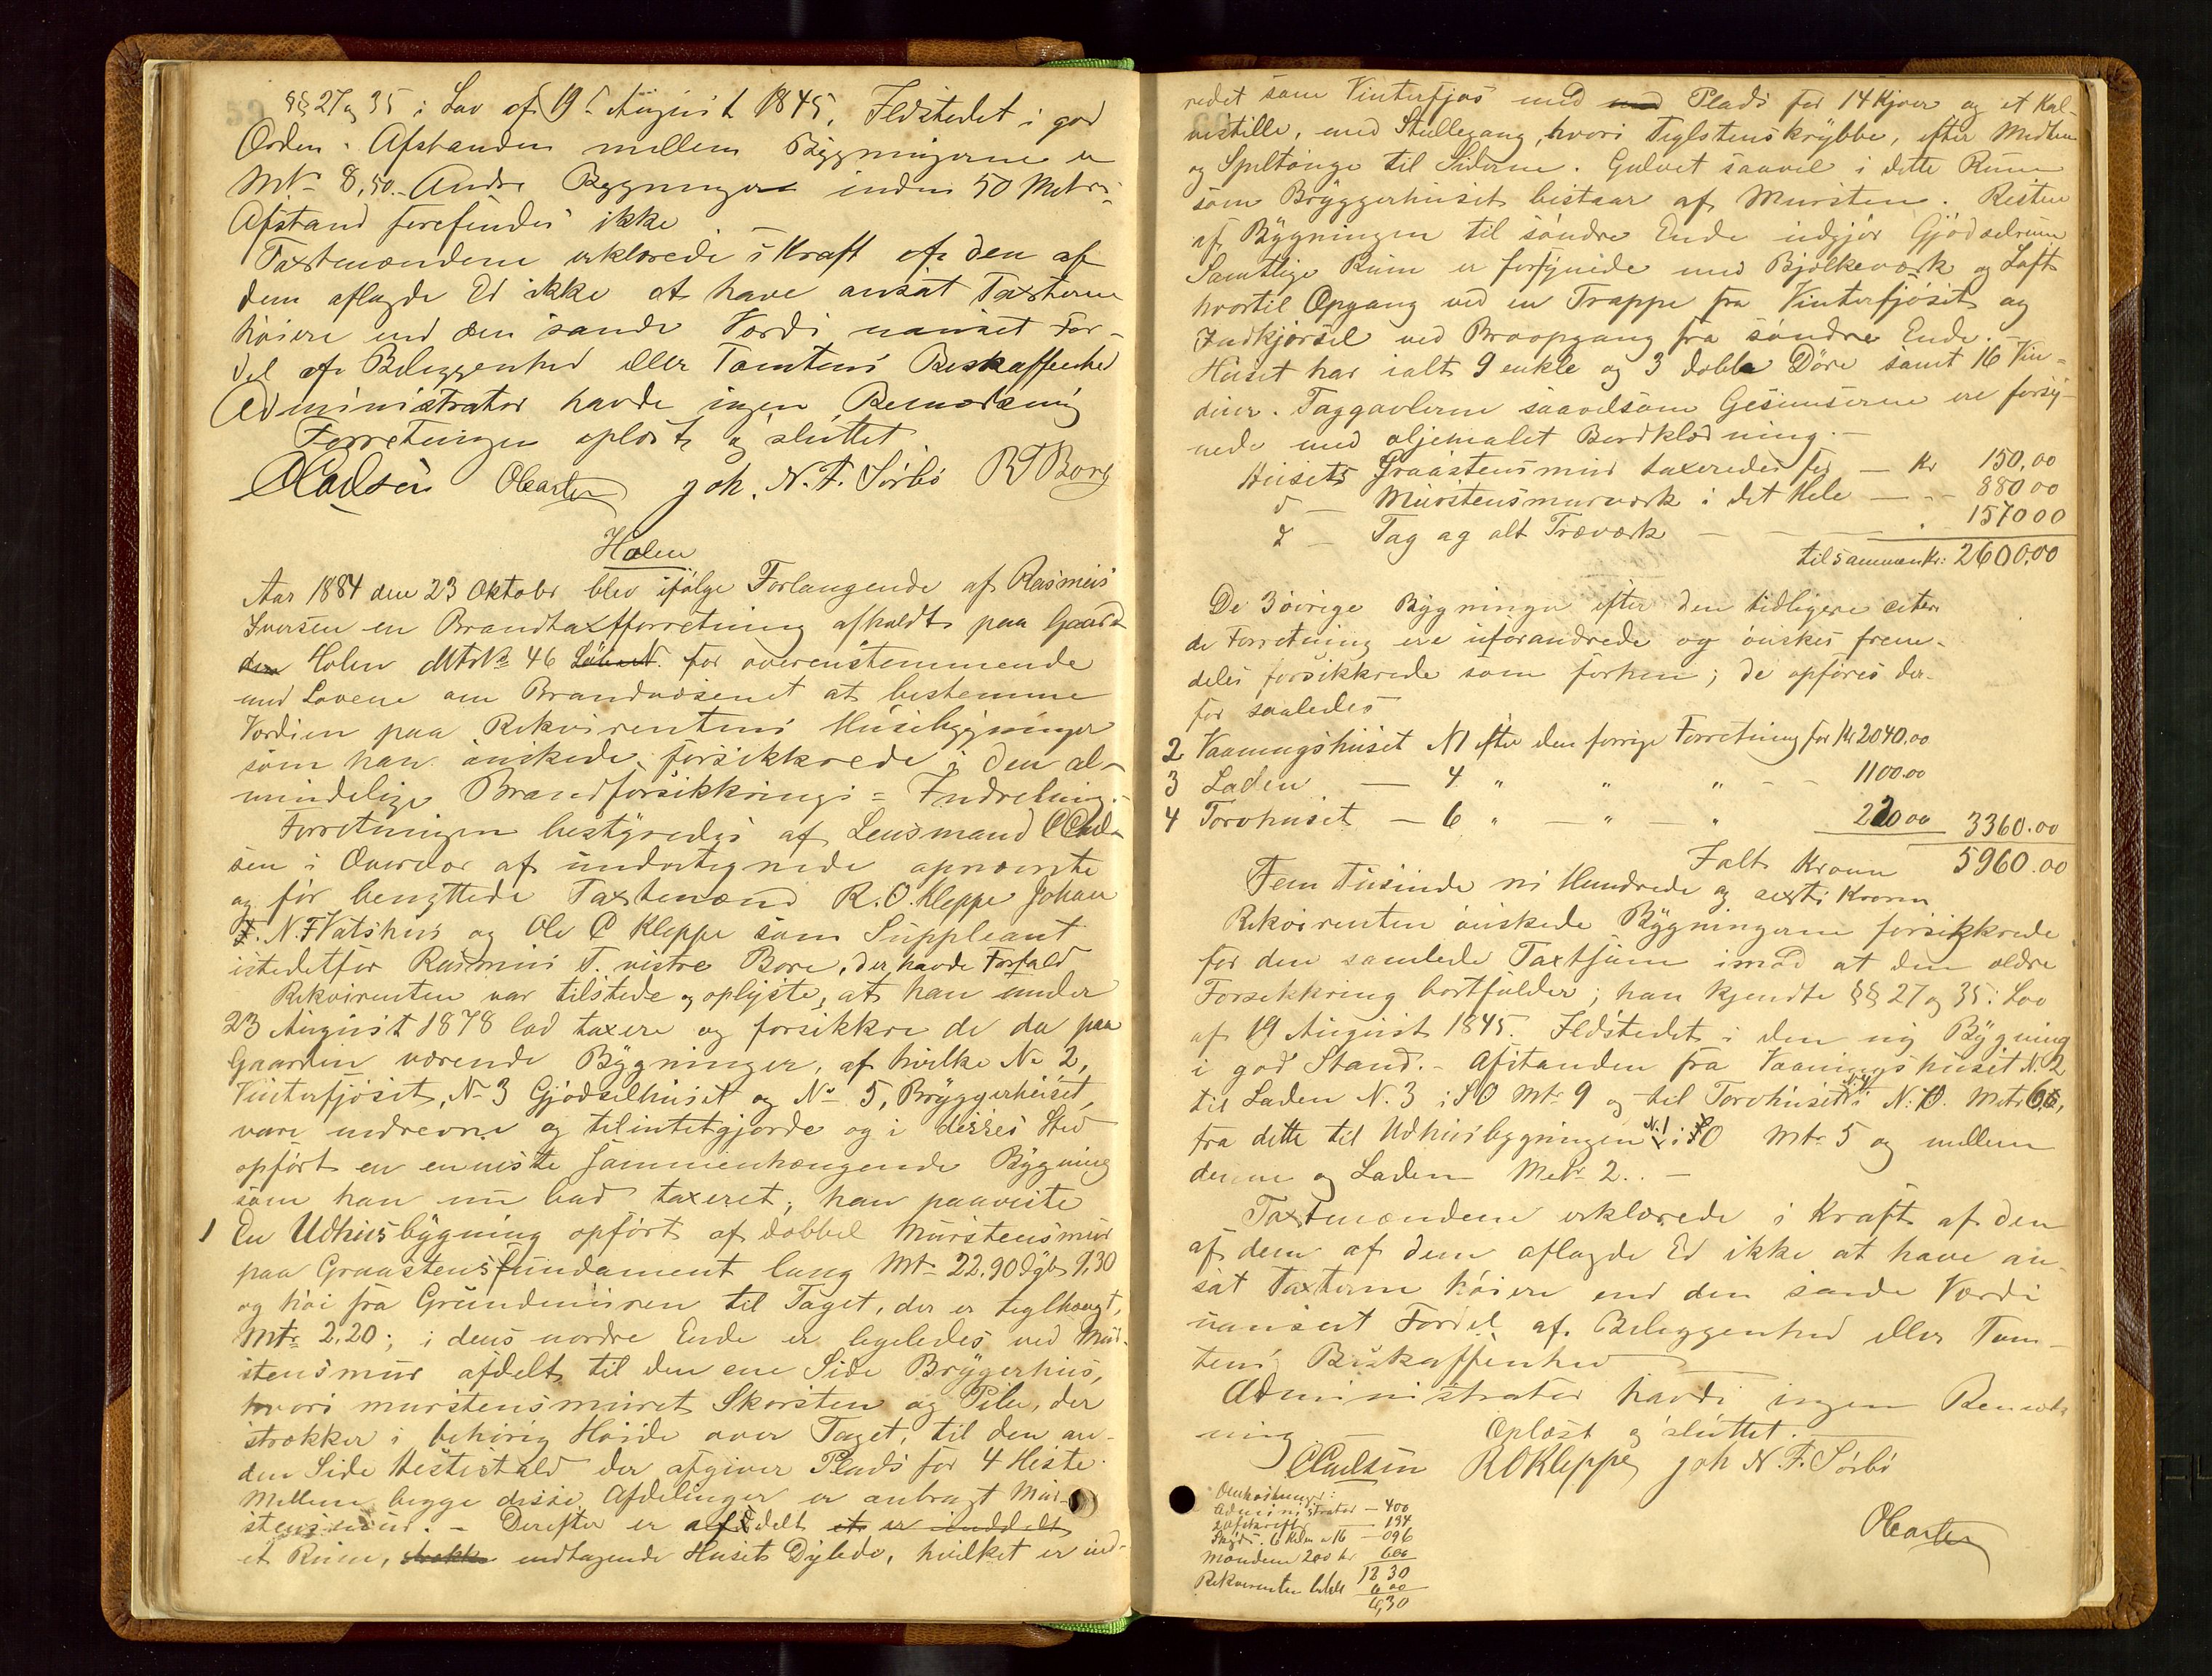 §§ 27 og 35 i Lov af 19de August 1845. Ildstedet i god
Orden. Afstanden mellem Bygningerne er
Mtr 8,50. Andre Bygninger inden 50 Metrs
Afstand forefindes ikke
Taxtmændene erklærede i Kraft af den af
dem aflagde Ed ikke at have ansat Taxterne
høiere end den sande Værdi uanset For-
del af Beliggenhed eller Tomtens Beskaffenhed
Administrator havde ingen Bemærkning
Forretningen oplæst og sluttet
CCarlsen OCarlsen Joh. N. F. Sørbø R T Bore
Holen
Aar 1884 den 23 Oktober blev ifølge Forlangende af Rasmus
Iversen en Brandtaxtforretning afholdt paa Gaard
den Holen MtrNo 46 LøbeN. for overenstemmende
med Lovene om Brandvæsenet at bestemme
Værdien paa Rekvirentens Husebygninger
som han ønskede forsikkrede i den al-
mindelige Brandforsikkrings=Indretning.
Forretningen bestyredes af Lensmand CCarl-
sen i Overvær af undertegnede opnævnte
og før benyttede Taxtmænd R. O. Kleppe Johan
F. N. F Vatshus og Ole C Kleppe som Suppleant
istedetfor Rasmus T. vestre Bore, der havde Forfald
Rekvirenten var tilstede og oplyste, at han under
23 August 1878 lod taxere og forsikkre de da paa
Gaarden værende Bygninger, af hvilke No 2,
Vinterfjøset, No 3 Gjødselhuset og No 5, Bryggerhuset,
vare nedrevne og tilintetgjorde og i disses Sted
opført en eneste sammenhængende Bygning
som han nu bad taxeret; han paaviste
1 En Udhusbygning opført af dobbel Murstensmur
paa Graastensfundament lang Mtr 22.90 dyb 9,30
og høi fra Grundmuren til Taget, der er teglhængt,
Mtr 2.20; i dens nordre Ende er ligeledes ved Mur-
stensmur afdelt til den ene Side Bryggerhus,
hvori murstensmuret Skorsten og Pibe, der
strækker i behørig Høide over Taget, til den an-
den Side Hestestald der afgiver Plads for 4 Heste.
Mellem begge disse Afdelinger er anbragt Mur-
stensmur. - Derefter er afdelt et er inddelt
et Rum, indtagende Husets Dybde, hvilket er ind-
redet som Vinterfjøs med med Plads for 14 Kjøer og et Kal-
vestille, med Stellegang, hvori Teglstenskrybbe, efter Midten
og Spiltonge til Siderne. Gulvet saavel i dette Rum
som Bryggerhuset bestaar af Mursten. Resten
af Bygningen til søndre Ende udgjør Gjødselrum
Samtlige Rum er forsynede med Bjelkeværk og Loft
hvortil Opgang ved en Trappe fra Vinterfjøset og
Indkjørsel ved Broopgang fra søndre Ende. -
Huset har ialt 9 enkle og 3 doble Døre samt 16 Vin=
duer. Taggavlerne saavelsom Gesimserne ere forsy-
nede med oljemalet Bordklædning. -
Husets Graastensmur taxeredes for — Kr 150,00
d — Murstensmurværk i det Hele — " - 880 00
d — Tag og alt Træværk — — — . 1570 00
tilsammen Kr: 2600,00
De 3 øvrige Bygninger efter den tidligere citere
de Forretning ere uforandrede og ønskes frem-
deles forsikkrede som forhen; de opføres der-
for saaledes
2 Vaaningshuset N 1 efter den forrige Forretning for Kr 2040.00
3 Laden — 4 " " " - - 1100.00
4 Torvhuset — 6 " — " — " 220 00 3360.00
Ialt Kroner 5960.00
Fem Tusinde ni Hundrede og sexti Kroner
Rekvirenten ønskede Bygningerne forsikkrede
for den samlede Taxtsum imod at den ældre
Forsikkring bortfalder; han kjendte §§ 27 og 35 i Lov
af 19 August 1845. Ildstedet i den ny Bygning
i god Stand. - Afstanden fra Vaaningshuset N. 2
til Laden N. 3 i SO Mtr 9 og til Torvhuset i N.O. Metr 6,
fra dette til Udhusbygningen N. 1 i SO Mtr 5 og mellem
denne og Laden Metr 2. . —
Taxtmændene erklærede i Kraft af den
af dem af dem aflagde Ed ikke at have an-
sat Taxterne høiere end den sande Værdi
uanseet Fordel af Beliggenhed eller Tom-
tens Beskaffenhed
Administrator havde ingen Bemærk
ning Oplæst og sluttet. —
CCarlsen R O Kleppe Joh N. F. Sørbø
OCarlsen
Omkostninger:
Administrator — 400
2 Afskrifter — 134
Skyds 6 Kilm a 16 — 096
Mændene 200 hr 600
12 30
Rekvirenten betalt 6 00
6,30